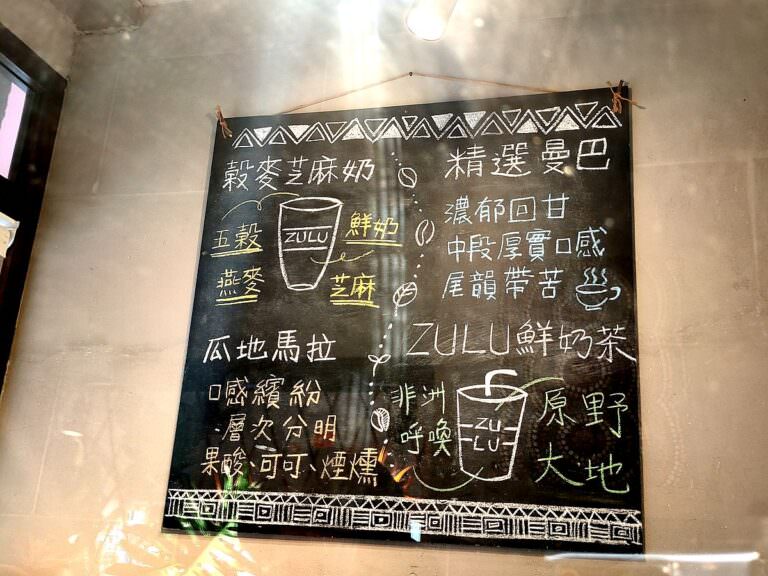 穀麥芝麻奶
五穀
ZULU
鮮奶
燕麥
芝麻
精選曼巴
濃郁回甘
中段厚實口感
尾韻帶苦
瓜地馬拉
口感繽紛
層次分明
果酸、可可、煙燻
ZULU鮮奶茶
非洲
呼喚
ZU
LU
原野
大地